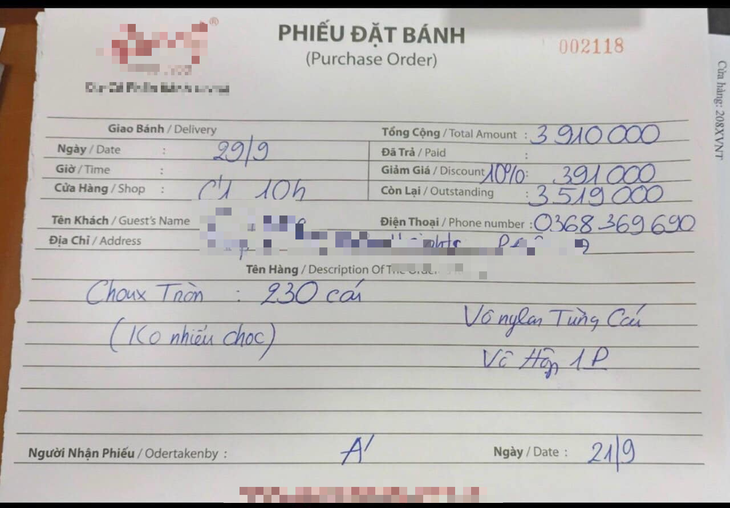 PHIẾU ĐẶT BÁNH
(Purchase Order)
002118
Cửa hàng: 208XVNT
Giao Bánh / Delivery
Ngày / Date : 29/9
Giờ / Time :
Cửa Hàng / Shop : C1 10h
Tổng Cộng / Total Amount : 3910000
Đã Trả / Paid :
Giảm Giá / Discount 10%: 391000
Còn Lại / Outstanding : 3519000
Tên Khách / Guest's Name
Điện Thoại / Phone number : 0368 369 690
Địa Chỉ / Address
Tên Hàng / Description Of The Order
Choux Tròn : 230 cái
(Ko nhiều choc)
Vô nylan Từng Cái
Vô Hộp 1P
Người Nhận Phiếu / Odertakenby : A'
Ngày / Date : 21/9